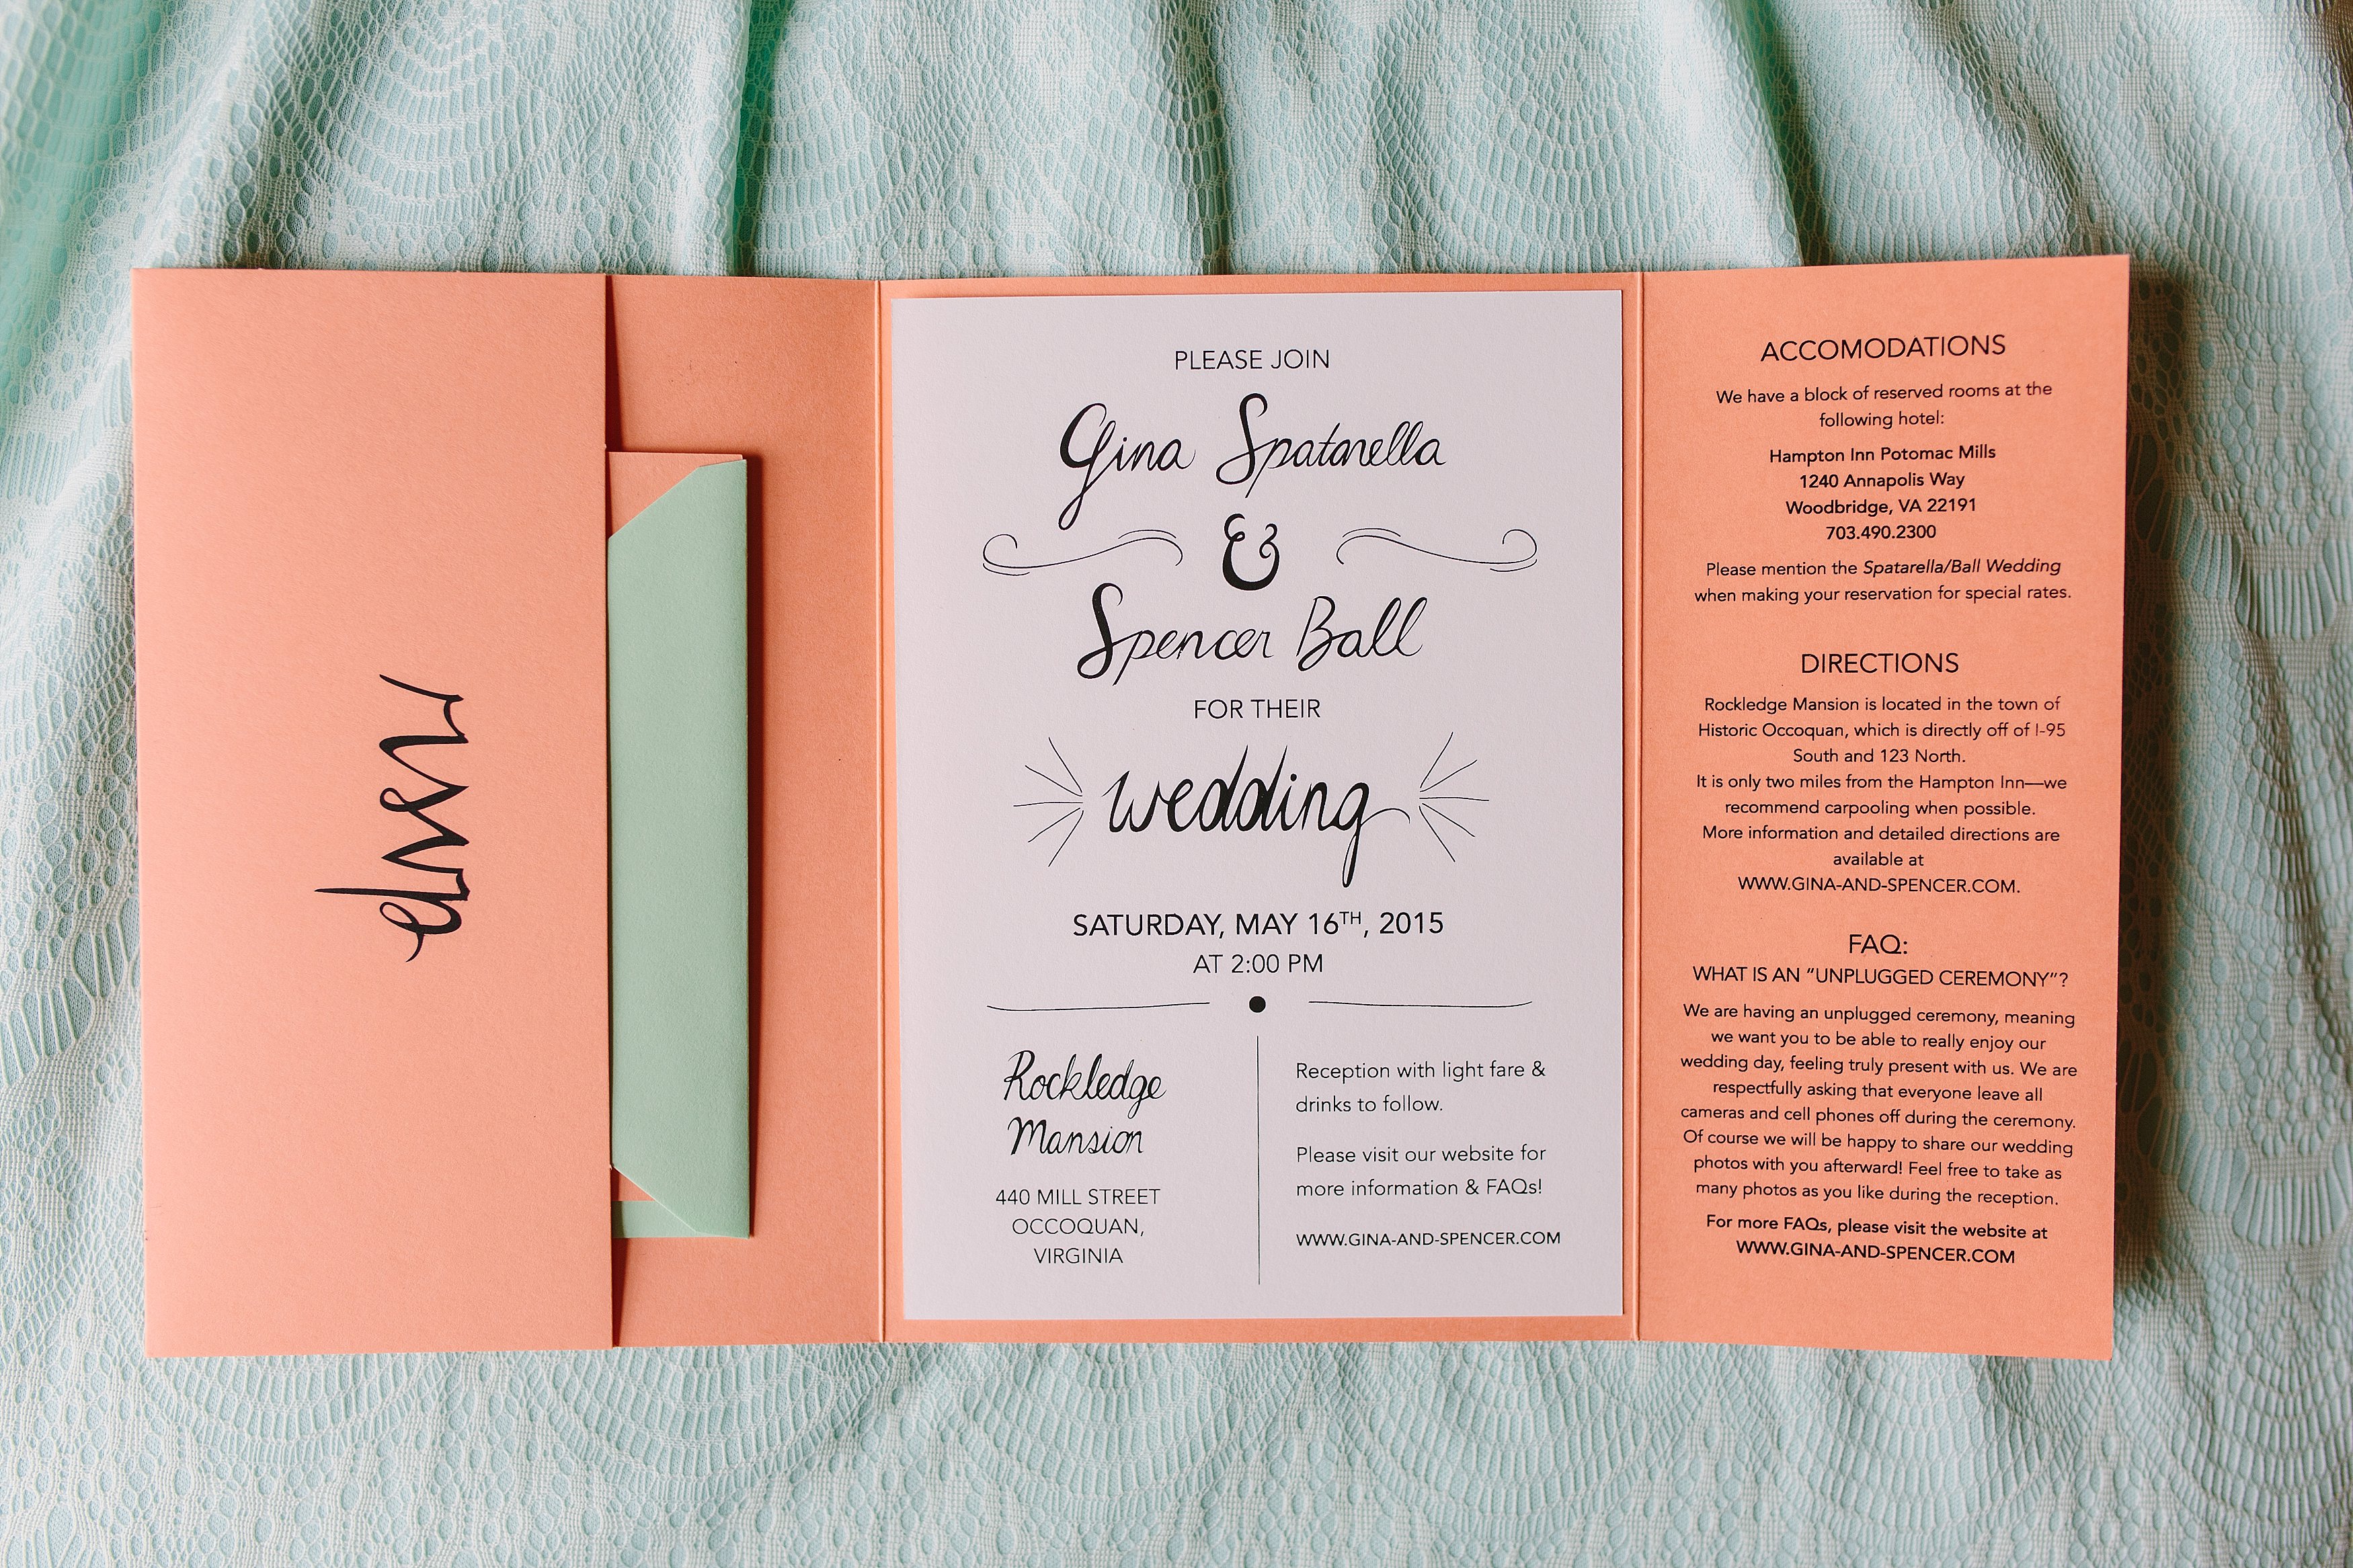 rsvp
PLEASE JOIN
Gina Spatarella
&
Spencer Ball
FOR THEIR
wedding
SATURDAY, MAY 16TH, 2015
AT 2:00 PM
Rockledge
Mansion
440 MILL STREET
OCCOQUAN,
VIRGINIA
Reception with light fare &
drinks to follow.
Please visit our website for
more information & FAQs!
WWW.GINA-AND-SPENCER.COM
ACCOMODATIONS
We have a block of reserved rooms at the
following hotel:
Hampton Inn Potomac Mills
1240 Annapolis Way
Woodbridge, VA 22191
703.490.2300
Please mention the Spatarella/Ball Wedding
when making your reservation for special rates.
DIRECTIONS
Rockledge Mansion is located in the town of
Historic Occoquan, which is directly off of I-95
South and 123 North.
It is only two miles from the Hampton Inn—we
recommend carpooling when possible.
More information and detailed directions are
available at
WWW.GINA-AND-SPENCER.COM.
FAQ:
WHAT IS AN “UNPLUGGED CEREMONY”?
We are having an unplugged ceremony, meaning
we want you to be able to really enjoy our
wedding day, feeling truly present with us. We are
respectfully asking that everyone leave all
cameras and cell phones off during the ceremony.
Of course we will be happy to share our wedding
photos with you afterward! Feel free to take as
many photos as you like during the reception.
For more FAQs, please visit the website at
WWW.GINA-AND-SPENCER.COM